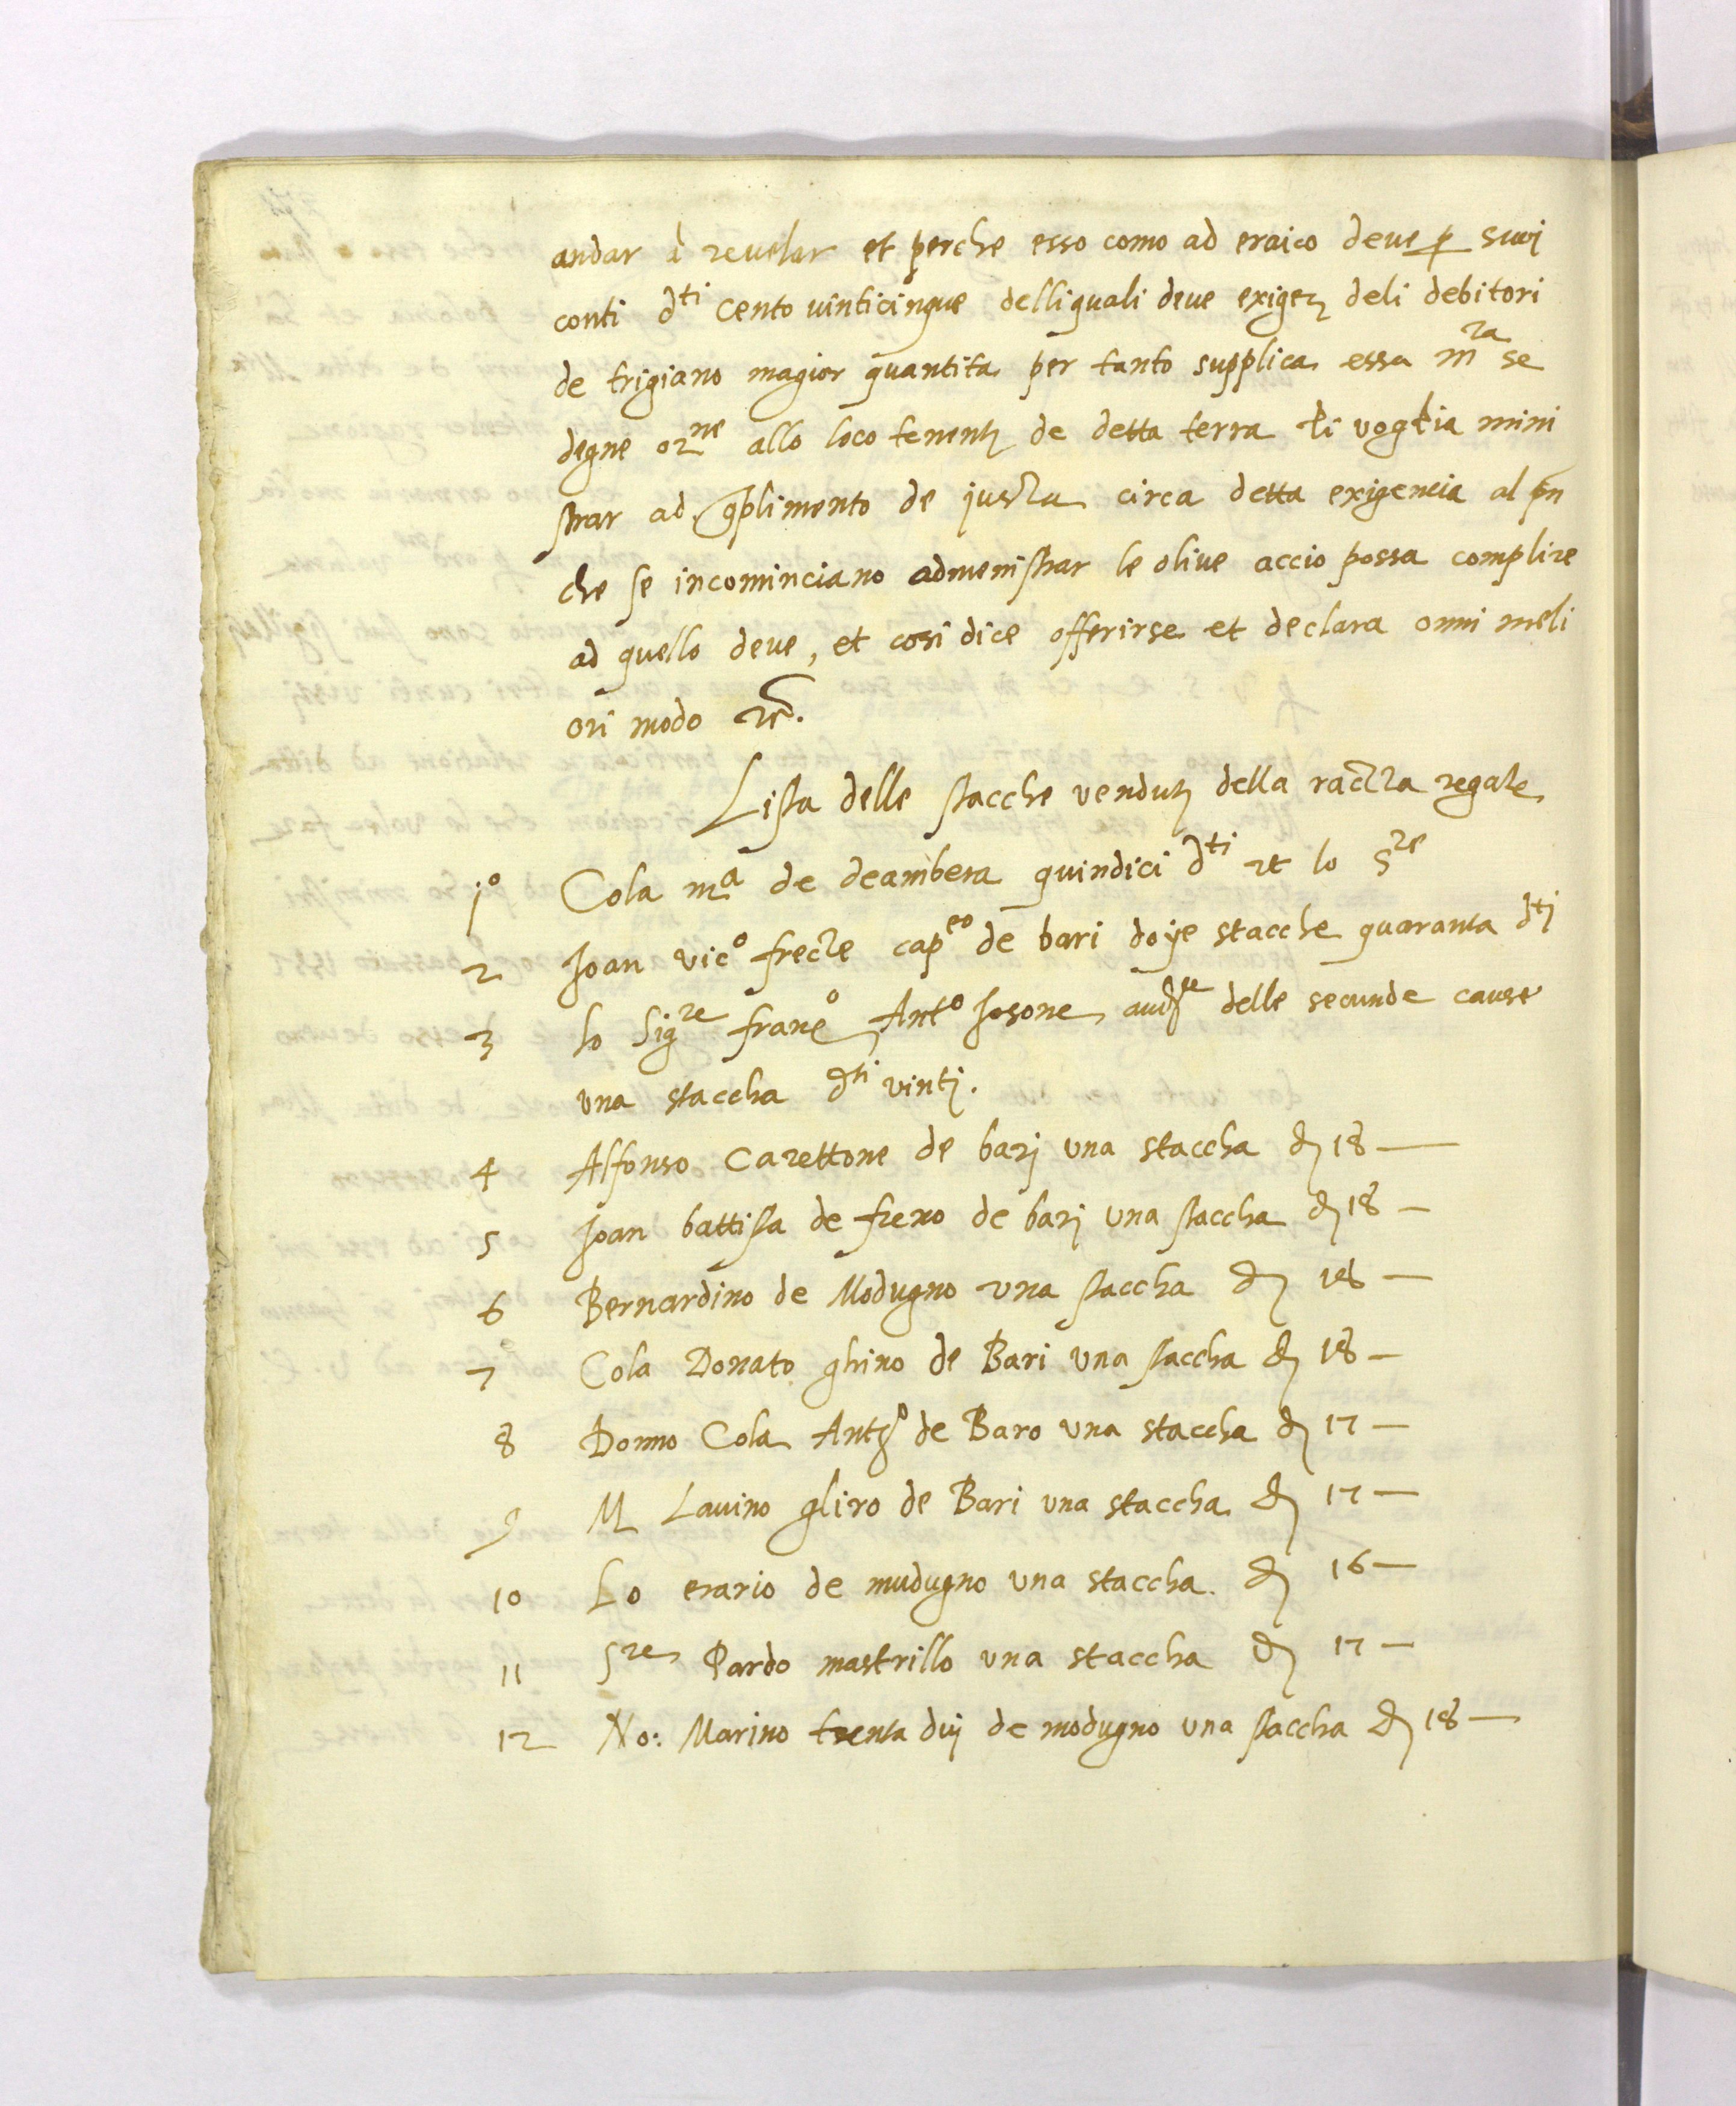 andar à revelar et perche esso como ad eraico deve p suoi
conti dti Cento vinticinque delliquali deve exiger deli debitori
de trigiano magior quantita per tanto supplica essa mra se
degne orne allo loco tenente de detta terra li voglia mini
strar ad cplimento de justa circa detta exigencia al pn
che se incominciano admenistrar le olive accio possa complire
ad quello deve, et cosi dice offerirse et declara omni meli
ori modo etc.
Lista delle stacche vendute della razza regale
1o Cola ma de deambera quindici dti et lo Sre
2 Joan vico frecze capeo de bari doye stacche quaranta dti
3 lo Sigre franco Anto Josone audre delle secunde cause
una staccha dti vinti.
4 Alfonso Carettone de barj una staccha d 18 —
5 Joan battista de freno de barj una staccha d 18 —
6 Bernardino de Modugno una staccha d 18 —
7 Cola Donato ghiro de Bari una staccha d 18 —
8 Donno Cola Anto de Baro una staccha d 17 —
9 M Lavino gliro de Bari una staccha d 17 —
10 Lo erario de mudugno una staccha d 16 —
11 Sre Pardo mastrillo una staccha d 17 —
12 No: Marino trenta duj de modugno una staccha d 18 —